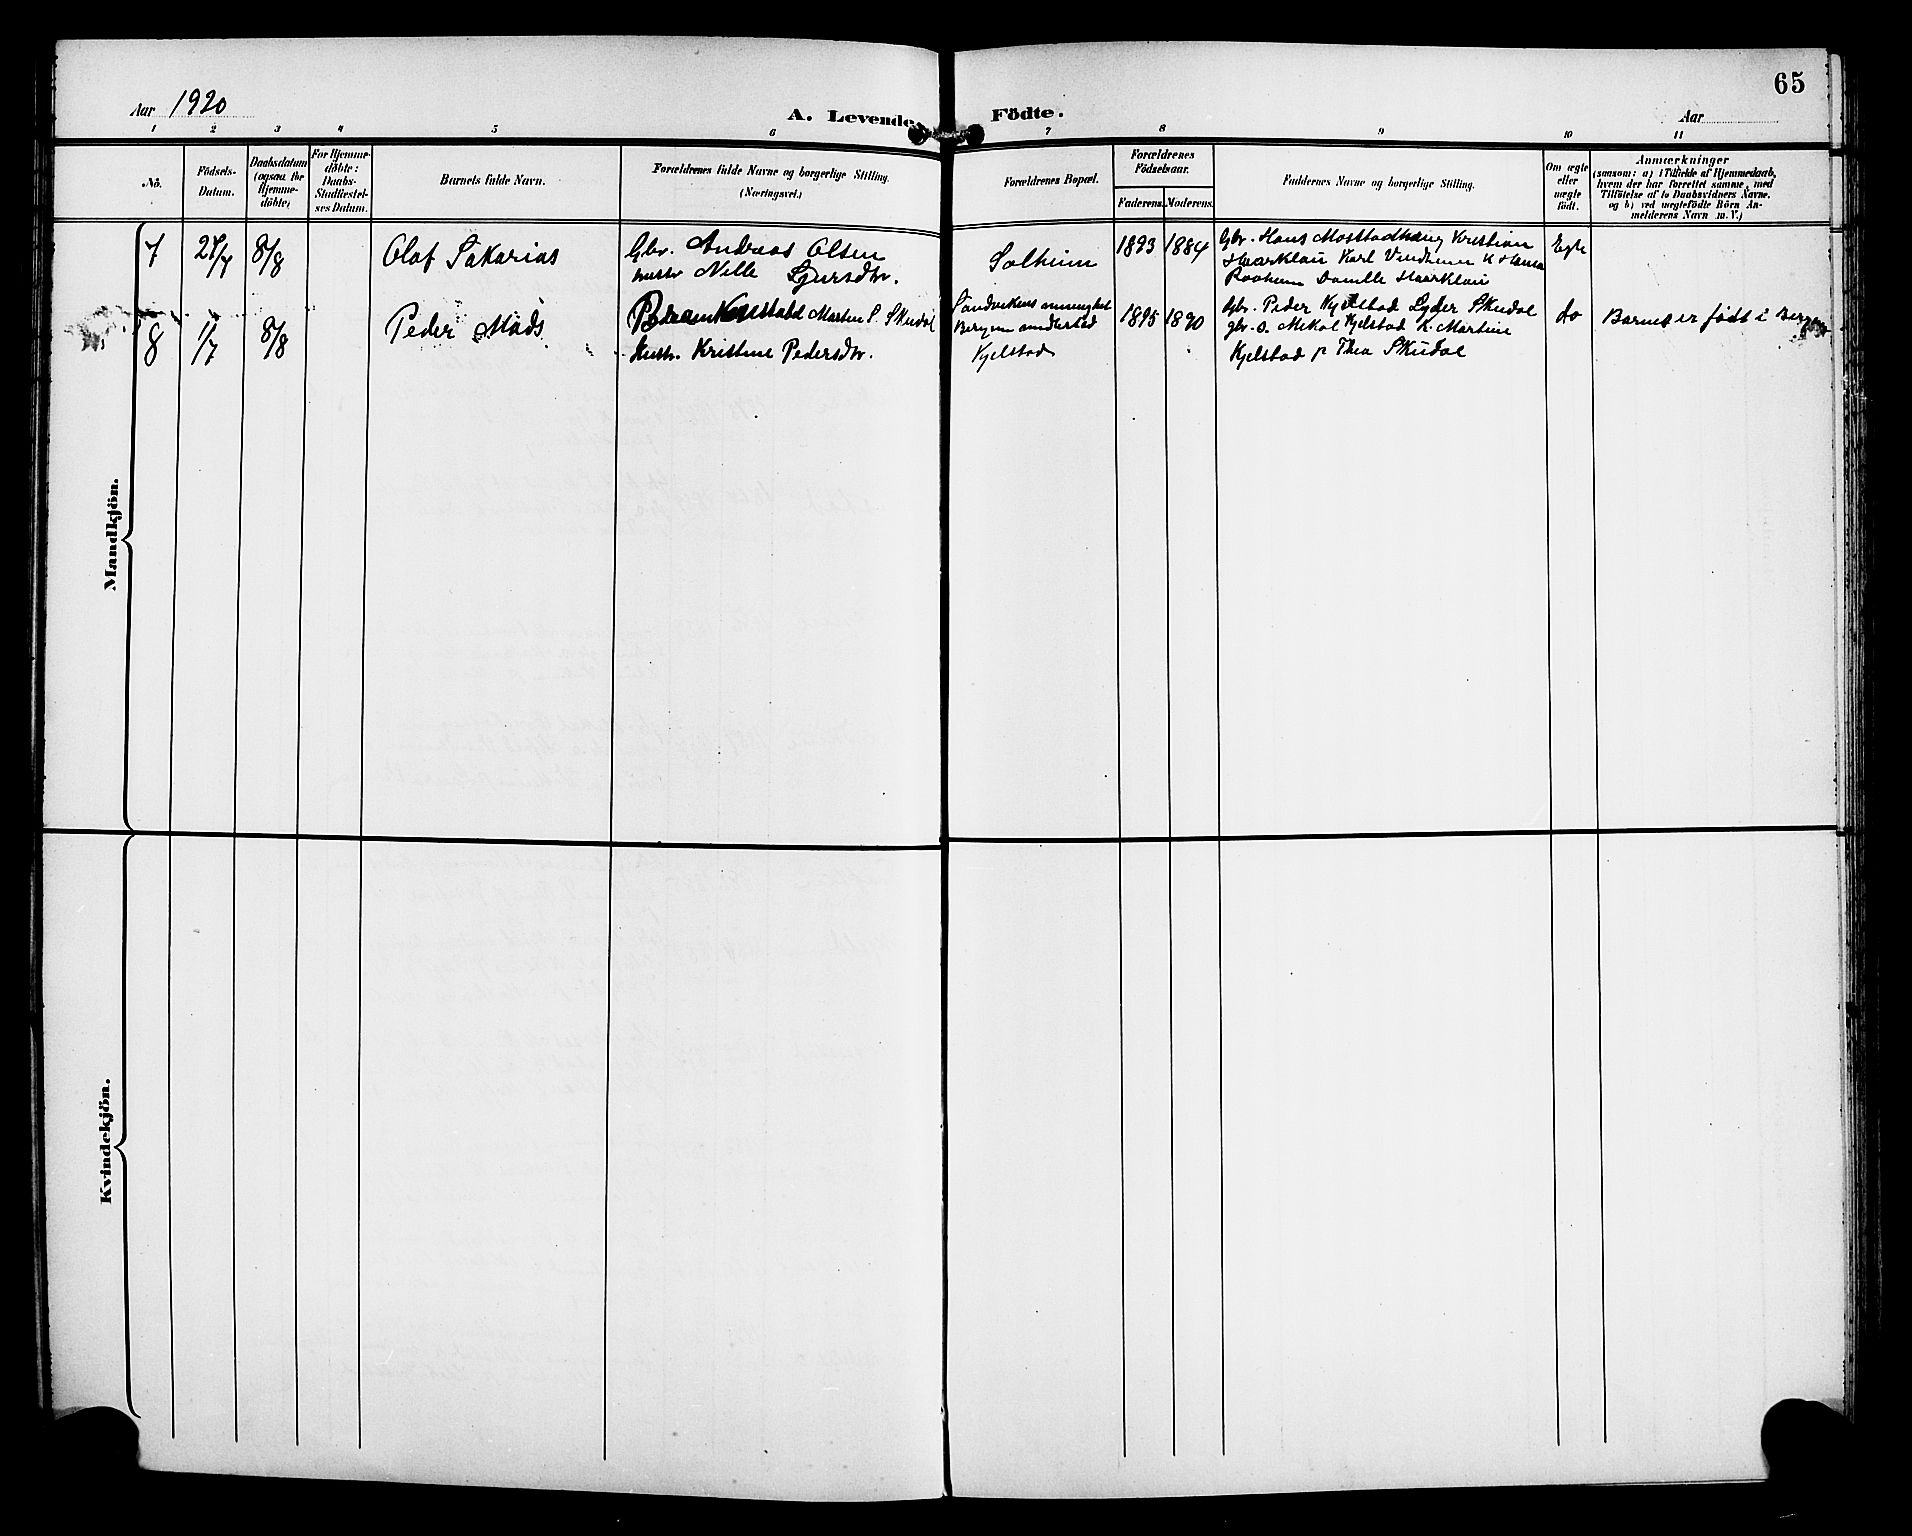 65
Aar 1920
A. Levende
Födte.
Aar
1 2 3 4 5 6 7 8 9 10 11
No.
Födsels-
Datum.
Daabsdatum
(ogsaa for
Hjemme-
döbte)
For Hjemme-
döbte:
Daabs-
Stadfestel-
ses Datum.
Barnets fulde Navn.
Forældrenes fulde Navne og borgerlige Stilling.
(Næringsvei.)
Forældrenes Bopæl.
Forældrenes
Födselsaar.
Faderens. Moderens.
Faddernes Navne og borgerlige Stilling.
Om ægte
eller
uægte
födt.
Anmærkninger
(saasom: a) i Tilfælde af Hjemmedaab,
hvem der har forrettet samme, med
Tilföielse af to Daabsvidners Navne.
og b) ved uægtefödte Börn An-
melderens Navn m. V.)
Mandkjön.
7
8/8
Olaf Sakarias
Gbr. Andreas Olsen
hustr Nille Sjursdtr.
Solheim
1893
1884
Gbr. Hans Mostadhaug Kristian
Haarklau Karl Vindheim K Hansa
Raaheim Damille Haarklau
Egte
8
1/7
8/8
Peder Mads
Marten S. Skudal
Hustr. Kristine Pedersdtr.
Sandvikens menighet
Bergen
Kjelstad
1895
1890
Gbr. Peder Kjelstad Lyder Skudal
gbr.s. Mikal Kjelstad K. Martine
Kjelstad p Thea Skudal
do
Barnet er født i Bergen
Kvindekjön.